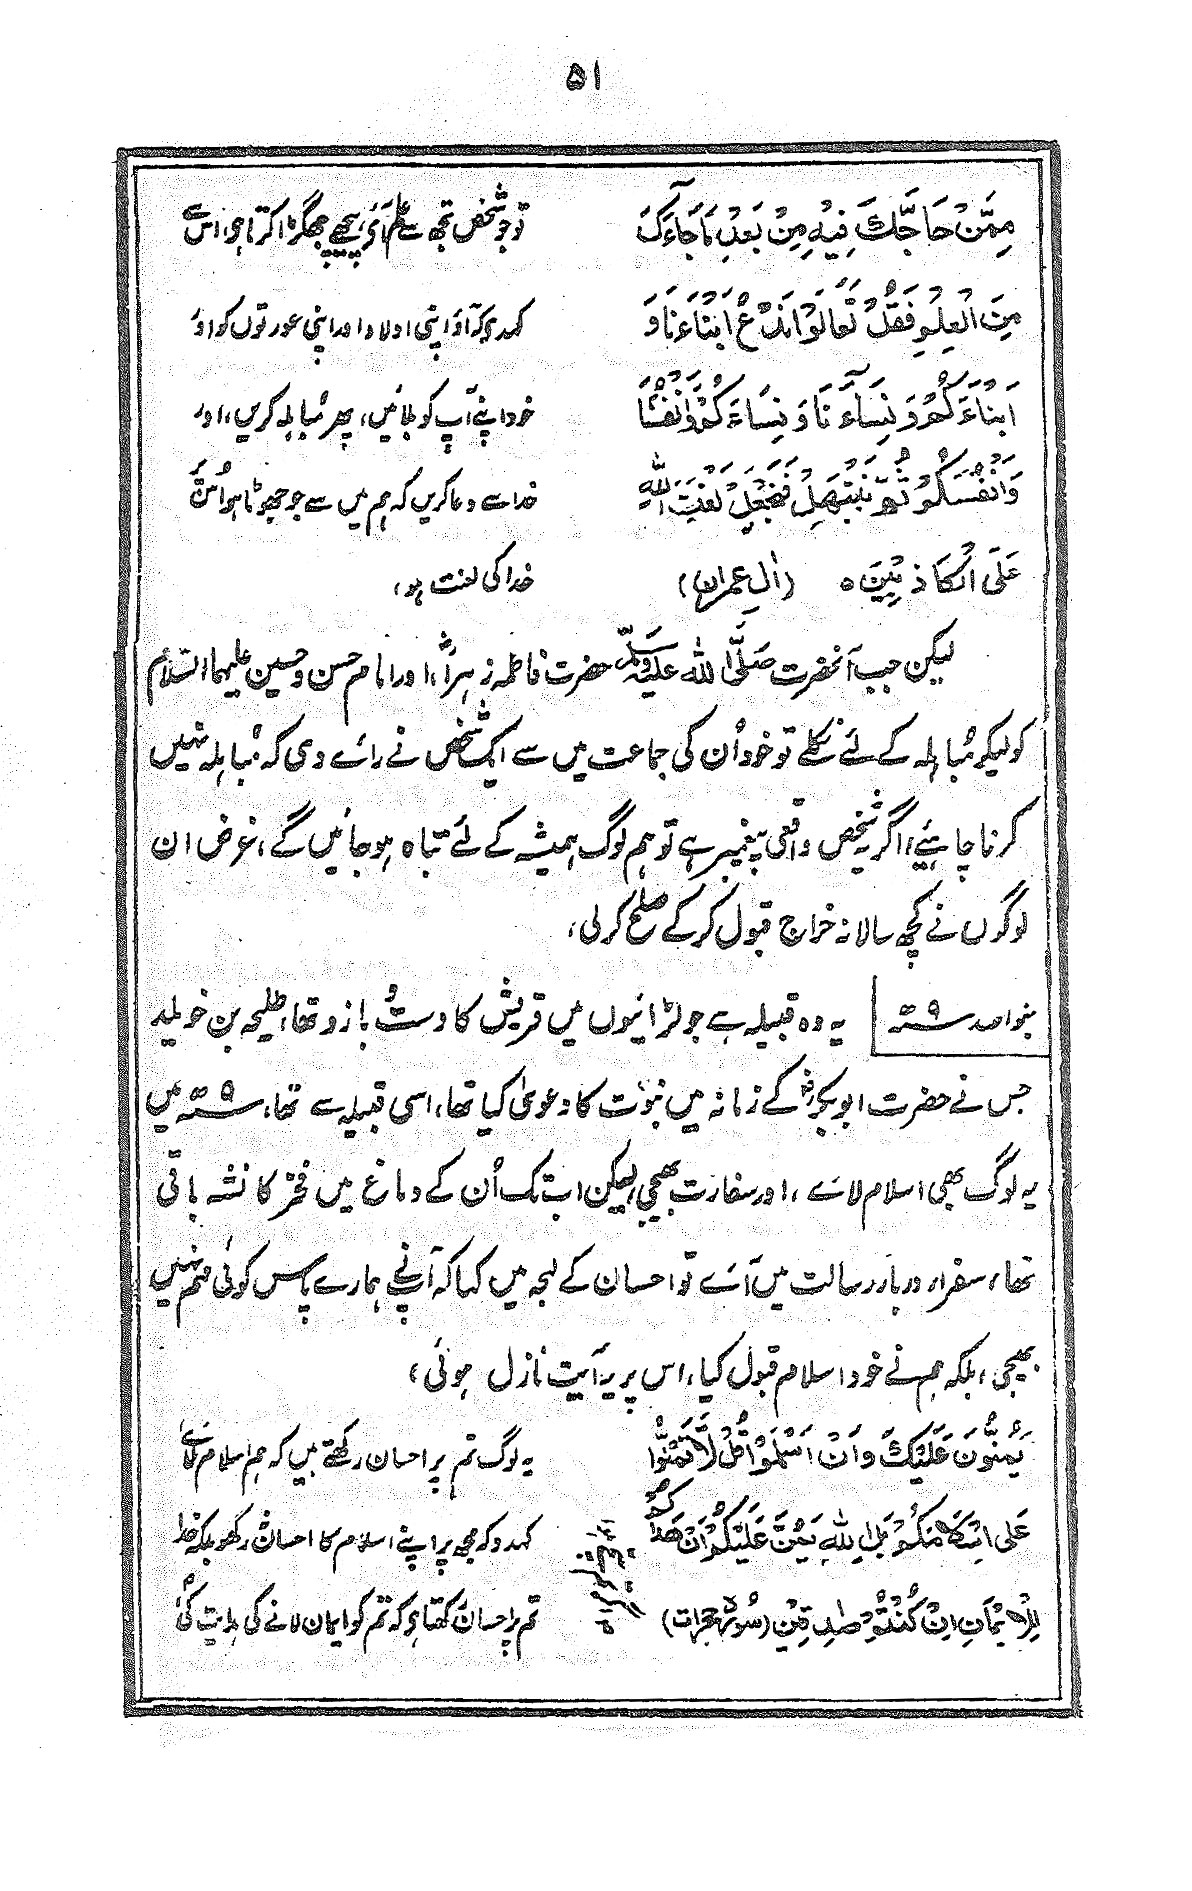 ۵۱
مِمَّنْ حَاجَّكَ فِيْهِ مِنْ بَعْدِ مَا جَآءَكَ
تو جو شخص تجھ سے علم آئے پیچھے جھگڑا کرتا ہو، اس سے
مِنَ الْعِلْمِ فَقُلْ تَعَالَوْا نَدْعُ اَبْنَاءَنَا وَ
کہدے کہ آؤ اپنی اولاد اور اپنی عورتوں کو اور
اَبْنَاءَكُمْ وَنِسَآءَنَا وَنِسَاءَكُمْ وَاَنْفُسَنَا
خود اپنے آپ کو بلائیں، پھر مُباہلہ کریں، اور
وَاَنْفُسَكُمْ ثُمَّ نَبْتَهِلْ فَنَجْعَلْ لَعْنَتَ اللّٰهِ
خدا سے دعا کریں کہ ہم میں سے جو جھوٹا ہو اُس پر
عَلَى الْكَاذِبِيْنَ ۝ (اٰلِ عمران)
خدا کی لعنت ہو،
لیکن جب آنحضرت صَلَّی اللہ عَلَیْہِ وَسَلَّم حضرت فاطمہ زہراؑ، اور امام حسن وحسین علیہما السّلام
کو لیکر مُباہلہ کے لئے نکلے تو خود اُن کی جماعت میں سے ایک شخص نے رائے دی کہ مُباہلہ نہیں
کرنا چاہئے، اگر یہ شخص واقعی پیغمبر ہے تو ہم لوگ ہمیشہ کے لئے تباہ ہو جائیں گے، غرض ان
لوگوں نے کچھ سالانہ خراج قبول کر کے صلح کر لی،
بنو اسد سنہ ۹ھ
یہ وہ قبیلہ ہے جو لڑائیوں میں قریش کا دست و بازو تھا، طلیحہ بن خویلد
جس نے حضرت ابوبکرؓ کے زمانہ میں نبوّت کا دعویٰ کیا تھا، اسی قبیلہ سے تھا، سنہ ۹ھ میں
یہ لوگ بھی اسلام لائے، اور سفارت بھیجی، لیکن اب تک اُن کے دماغ میں فخر کا نشہ باقی
تھا، سفراء دربار رسالت میں آئے تو احسان کے لہجہ میں کہا کہ آپنے ہمارے پاس کوئی مہم نہیں
بھیجی، بلکہ ہم نے خود اسلام قبول کیا، اس پر یہ آیت نازل ہوئی،
يَمُنُّوْنَ عَلَيْكَ اَنْ اَسْلَمُوْا قُلْ لَّا تَمُنُّوا
یہ لوگ تم پر احسان رکھتے ہیں کہ ہم اسلام لائے
عَلَى اِسْلَامَكُمْ بَلِ اللّٰهُ يَمُنُّ عَلَيْكُمْ اَنْ هَدٰىكُمْ
کہدو کہ مجھ پر اپنے اسلام کا احسان نہ رکھو بلکہ خدا
لِلْاِيْمَانِ اِنْ كُنْتُمْ صٰدِقِيْنَ (سُورۂ حجرات)
تم پر احسان رکھتا ہی کہ تم کو ایمان لانے کی ہدایت کی